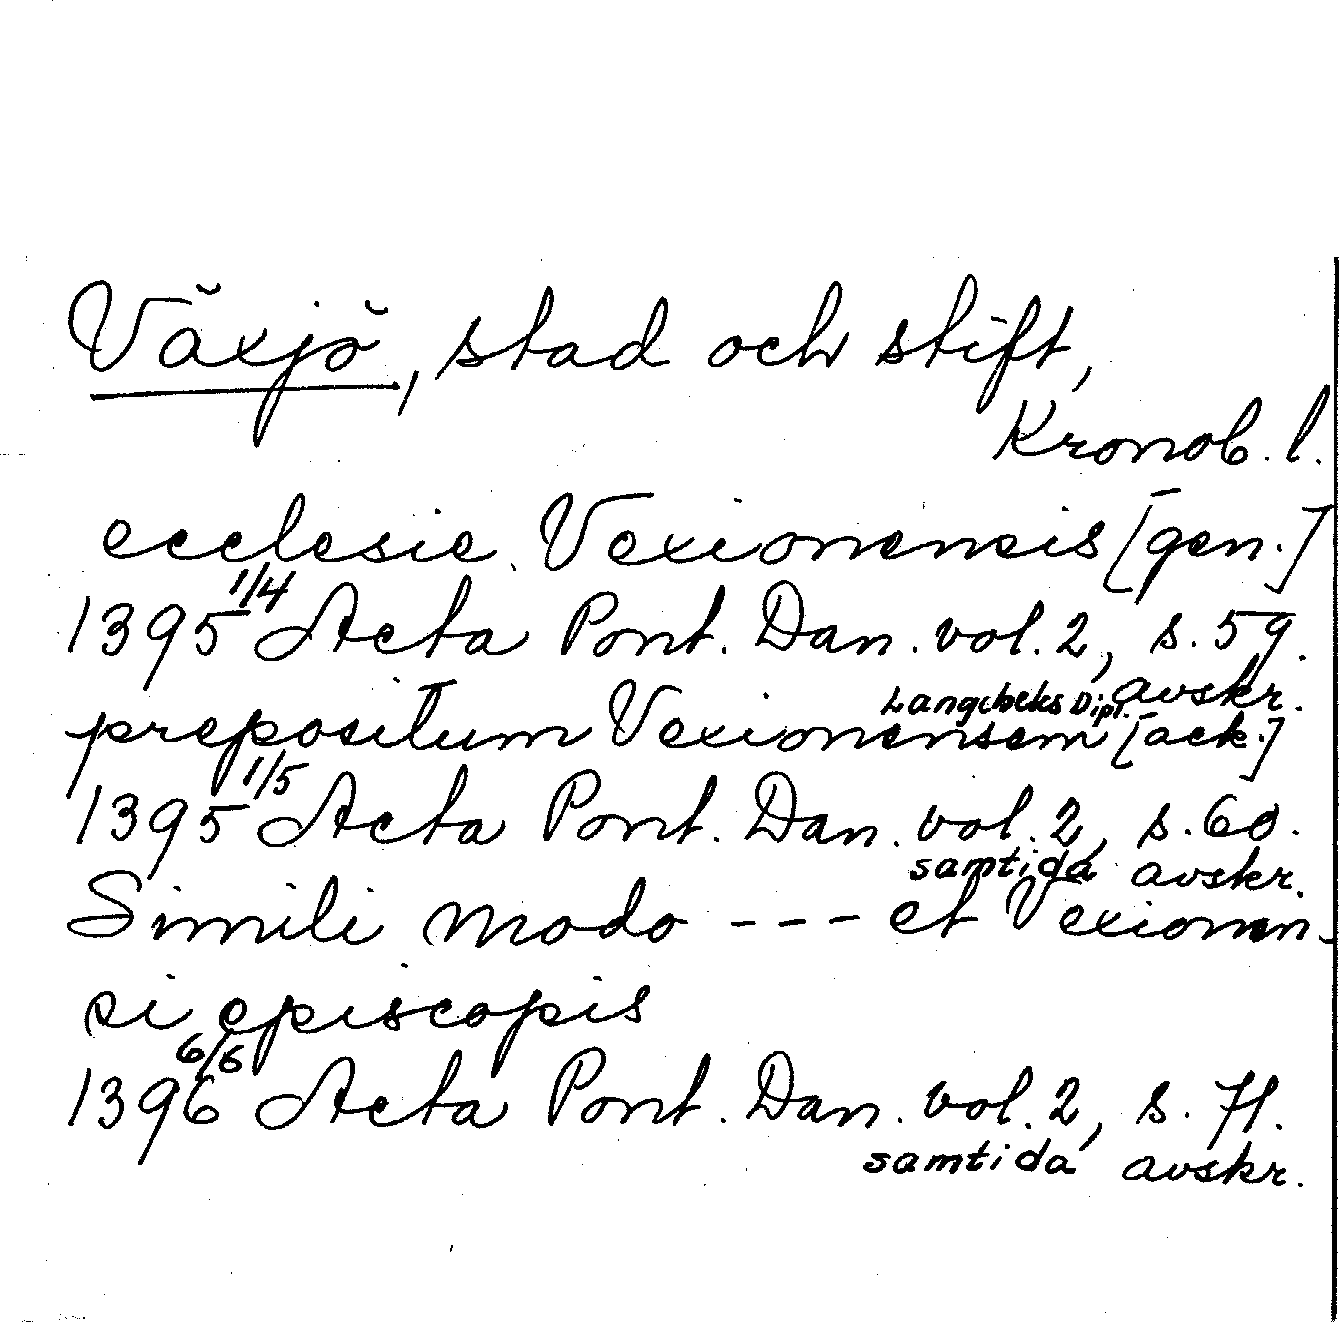 Växjö, stad och stift,
Kronob. l.
ecclesie Vexionensis [gen.]
1395 1/4 Acta Pont. Dan. vol. 2, s. 59.
Langebeks Dipl. avskr.
prepositum Vexionensem [ack.]
1395 1/5 Acta Pont. Dan. vol. 2, s. 60.
samtida avskr.
Simili modo --- et Vexionen-
si episcopis
1396 6/6 Acta Pont. Dan. vol. 2, s. 71.
samtida avskr.